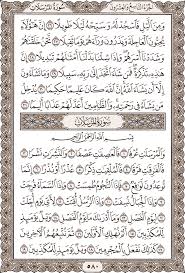 الجزء التاسع والعشرون سورة المرسلات
وَمِنَ ٱلَّيْلِ فَٱسْجُدْ لَهُۥ وَسَبِّحْهُ لَيْلًا طَوِيلًا ٢٦ إِنَّ هَٰٓؤُلَآءِ
يُحِبُّونَ ٱلْعَاجِلَةَ وَيَذَرُونَ وَرَآءَهُمْ يَوْمًا ثَقِيلًا ٢٧ نَّحْنُ خَلَقْنَٰهُمْ
وَشَدَدْنَآ أَسْرَهُمْ وَإِذَا شِئْنَا بَدَّلْنَآ أَمْثَٰلَهُمْ تَبْدِيلًا ٢٨ إِنَّ
هَٰذِهِۦ تَذْكِرَةٌ فَمَن شَآءَ ٱتَّخَذَ إِلَىٰ رَبِّهِۦ سَبِيلًا ٢٩ وَمَا تَشَآءُونَ
إِلَّآ أَن يَشَآءَ ٱللَّهُ إِنَّ ٱللَّهَ كَانَ عَلِيمًا حَكِيمًا ٣٠ يُدْخِلُ
مَن يَشَآءُ فِى رَحْمَتِهِۦ وَٱلظَّٰلِمِينَ أَعَدَّ لَهُمْ عَذَابًا أَلِيمًۢا ٣١
سُورَةُ المُرْسَلَاتِ
بِسْمِ ٱللَّهِ ٱلرَّحْمَٰنِ ٱلرَّحِيمِ
وَٱلْمُرْسَلَٰتِ عُرْفًا ١ فَٱلْعَٰصِفَٰتِ عَصْفًا ٢ وَٱلنَّٰشِرَٰتِ نَشْرًا ٣
فَٱلْفَٰرِقَٰتِ فَرْقًا ٤ فَٱلْمُلْقِيَٰتِ ذِكْرًا ٥ عُذْرًا أَوْ نُذْرًا ٦ إِنَّمَا
تُوعَدُونَ لَوَٰقِعٌ ٧ فَإِذَا ٱلنُّجُومُ طُمِسَتْ ٨ وَإِذَا ٱلسَّمَآءُ فُرِجَتْ ٩
وَإِذَا ٱلْجِبَالُ نُسِفَتْ ١٠ وَإِذَا ٱلرُّسُلُ أُقِّتَتْ ١١ لِأَىِّ يَوْمٍ أُجِّلَتْ ١٢
لِيَوْمِ ٱلْفَصْلِ ١٣ وَمَآ أَدْرَىٰكَ مَا يَوْمُ ٱلْفَصْلِ ١٤ وَيْلٌ يَوْمَئِذٍ
لِّلْمُكَذِّبِينَ ١٥ أَلَمْ نُهْلِكِ ٱلْأَوَّلِينَ ١٦ ثُمَّ نُتْبِعُهُمُ ٱلْءَاخِرِينَ ١٧
كَذَٰلِكَ نَفْعَلُ بِٱلْمُجْرِمِينَ ١٨ وَيْلٌ يَوْمَئِذٍ لِّلْمُكَذِّبِينَ ١٩
٥٨٠